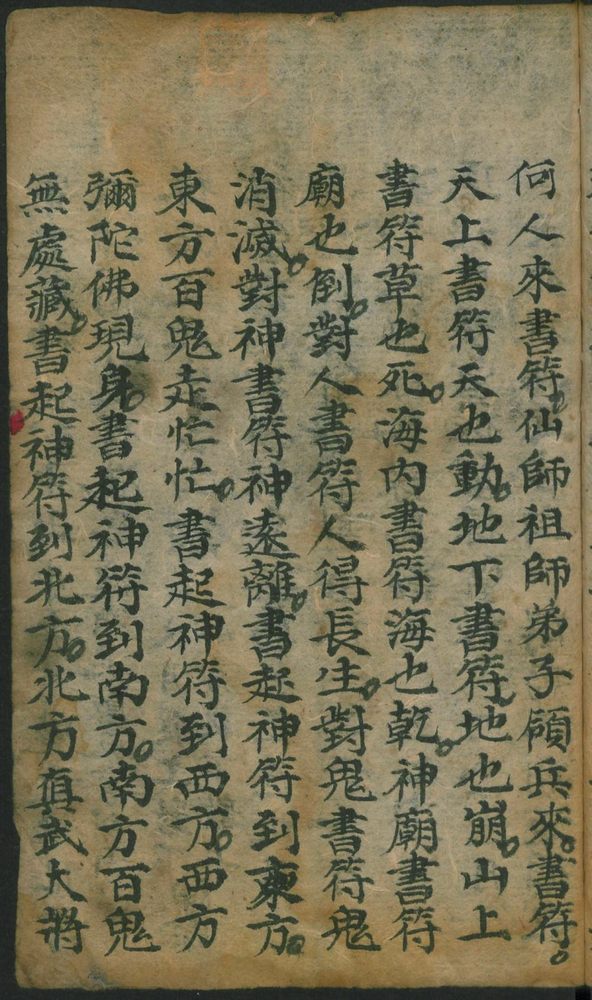 何人來書符。仙師祖師弟子領兵來。書符。
天上書符天也動。地下書符。地也崩。山上
書符草也死。海内書符海也乾。神廟書符
廟也倒。對人書符人得長生。對鬼書符鬼
消滅。對神書符神遠離。書起神符到東方。
東方百鬼走忙忙。書起神符到西方。西方
彌陀佛現身。書起神符到南方。南方百鬼
無處藏。書起神符到北方。北方眞武大將